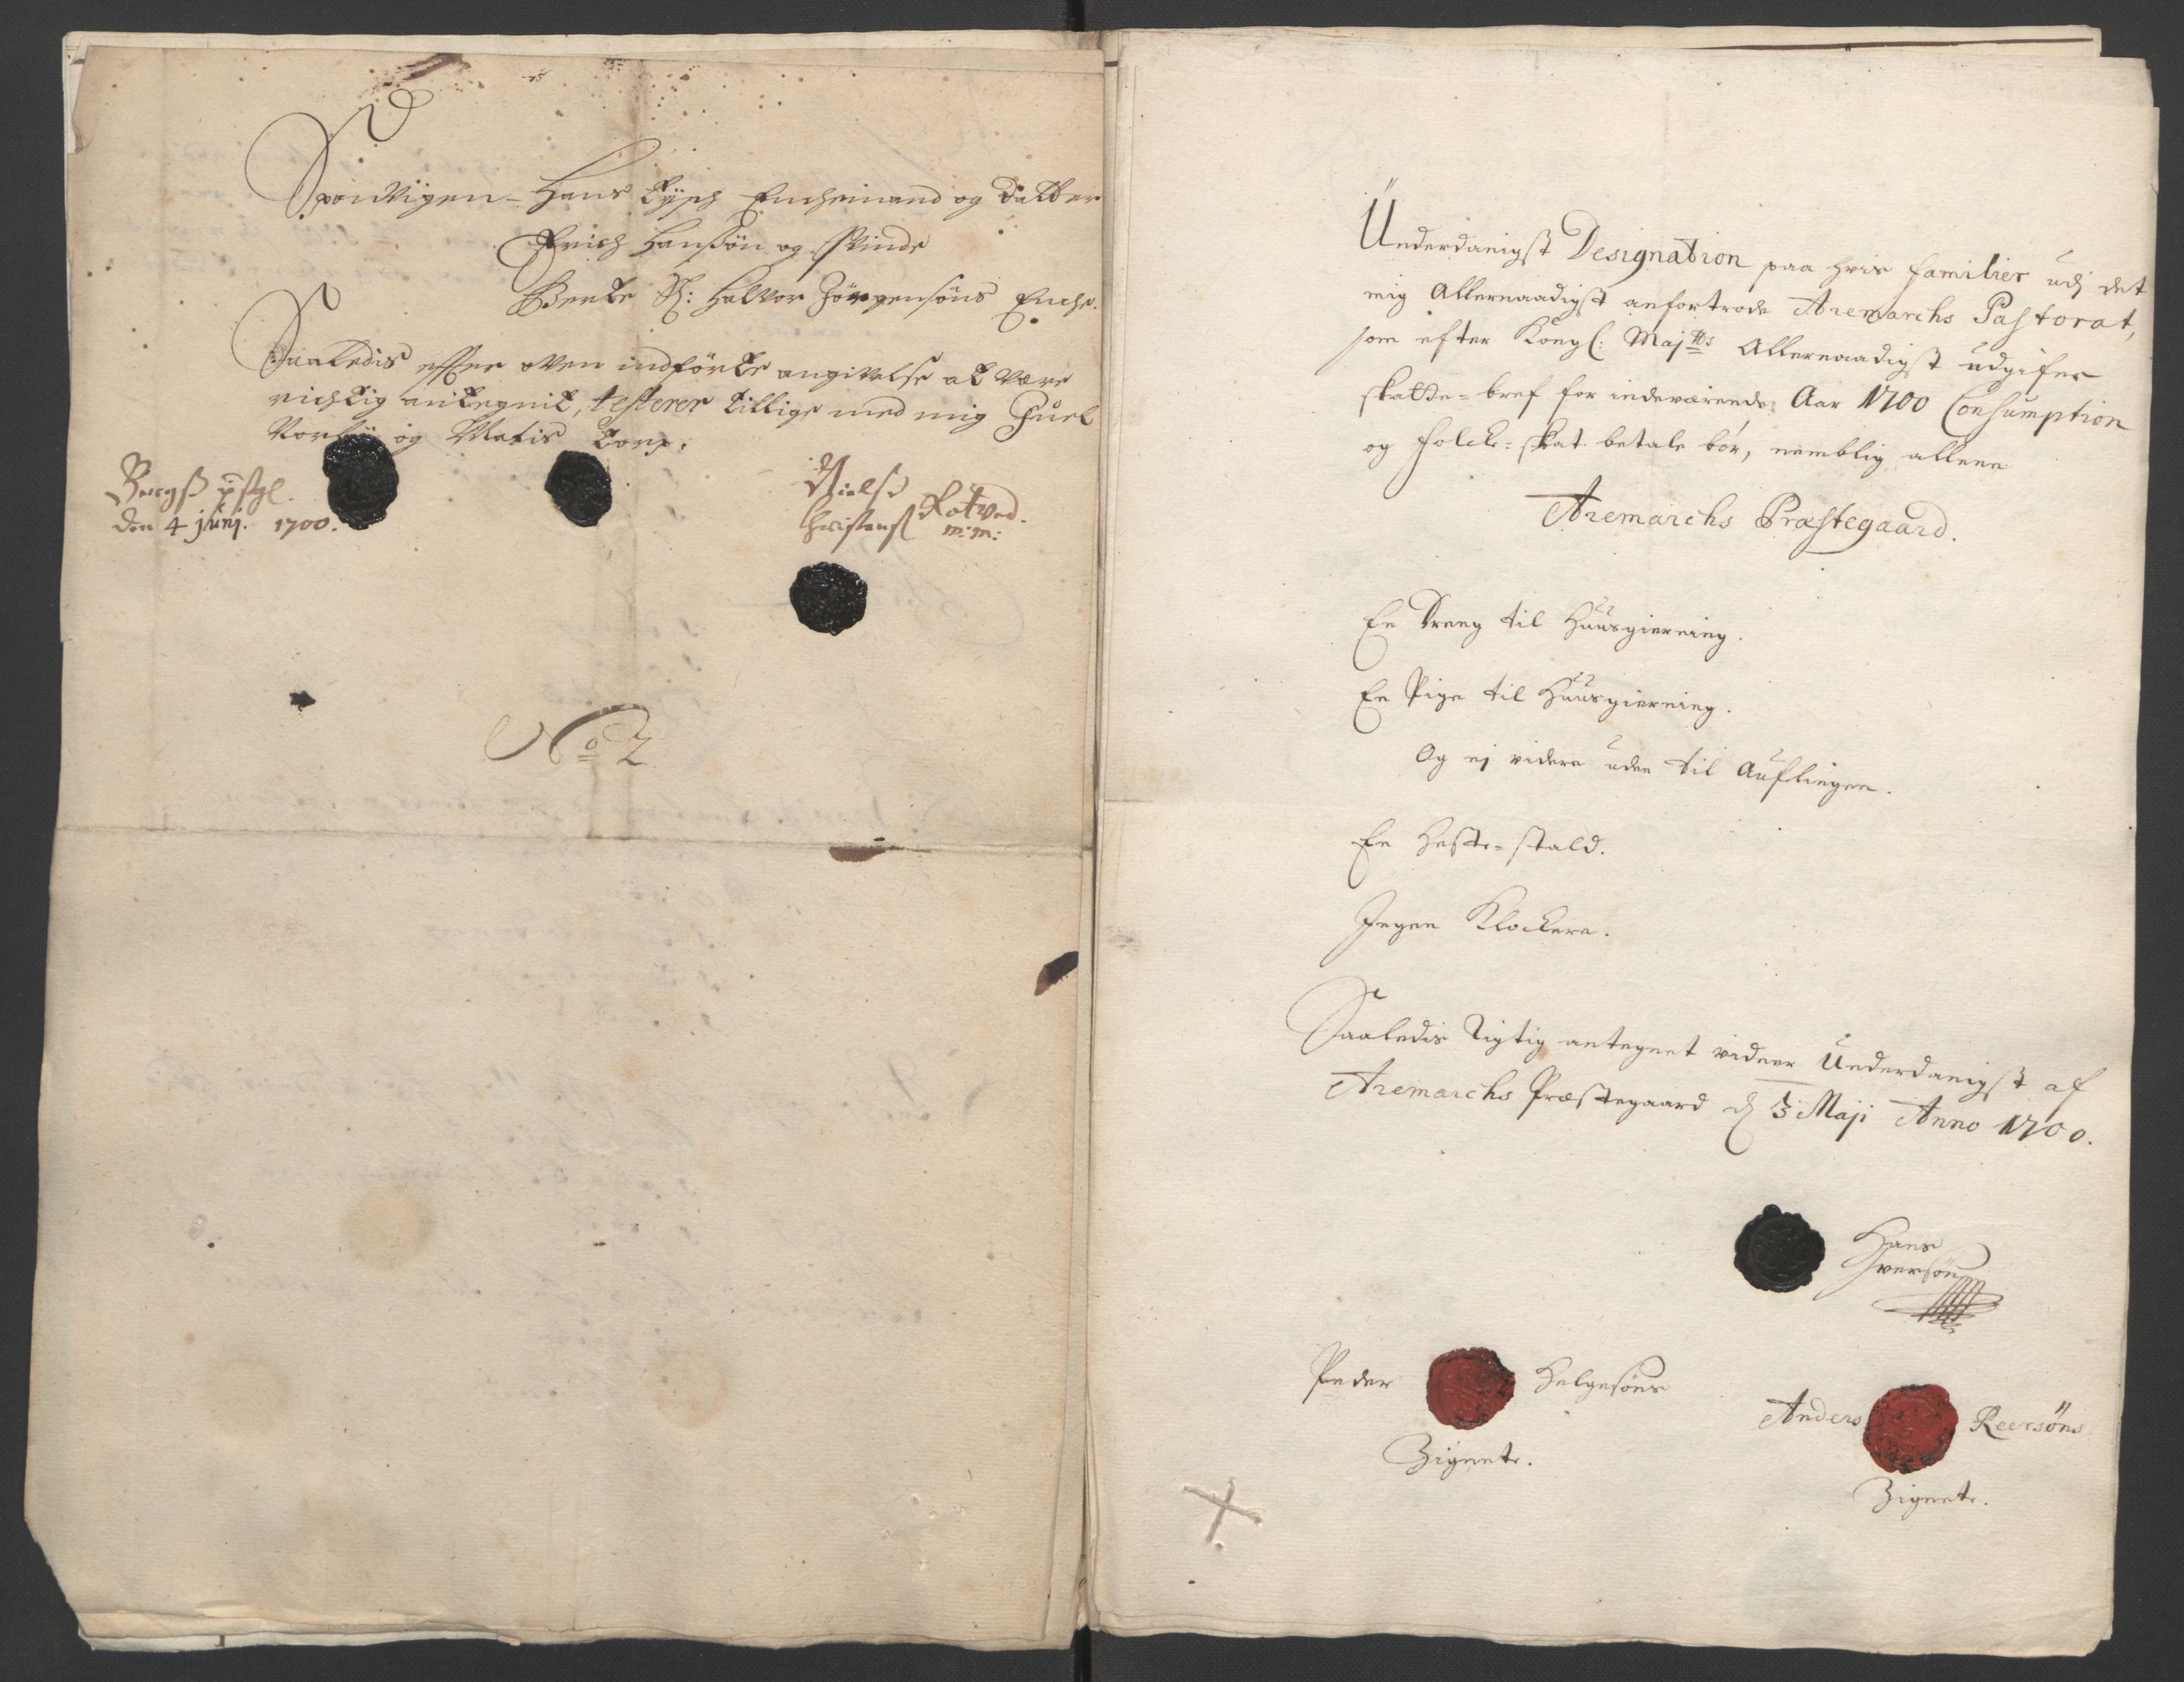 Hans Lÿch Enchemand og datter
Erich Hansøn og Qvinde
Berte Sl: Halvor Jörgensöns Enche.
Saaledis effter oven indförte angivelse at være
richtig antegnit, testerer tillige med mig Juel
og Matis Torp.
Nielse
den 4 junj. 1700. Christens Rotved.
m:m:
No 2
Underdanigst Designation paa hvis familier udj det
mig Allernaadigst anfortrode Aremarchs Pastorat,
som efter Kongl: Maj:ts Allernaadigst udgifne
skatte-bref for indeværende Aar 1700 Consumption
og folcke-skat betale bör, nemblig alleene
Aremarchs Præstegaard.
En Dreng til Huusgierning.
En Pige til Huusgierning.
Og ej videre uden til Auflingen.
En Heste-stald.
Ingen Klockere.
Saaledis Rigtig antegnet vidner Underdanigst af
Aremarchs Præstegaard d 3 Maji Anno 1700.
Hans
Iversön
Peder Helgesöns
Zignete.
Anders Reersöns
Zignete.